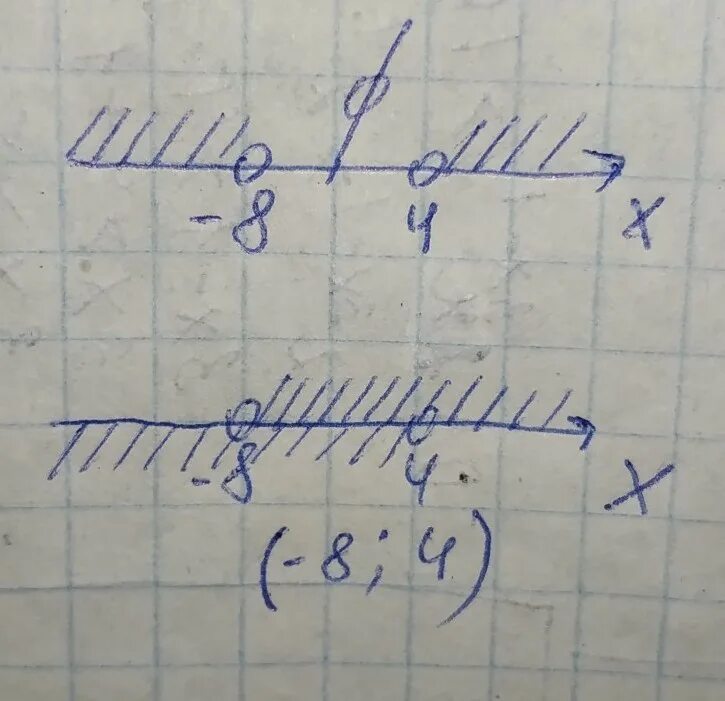 ∅
-8 4 x
-8 4 x
(-8; 4)